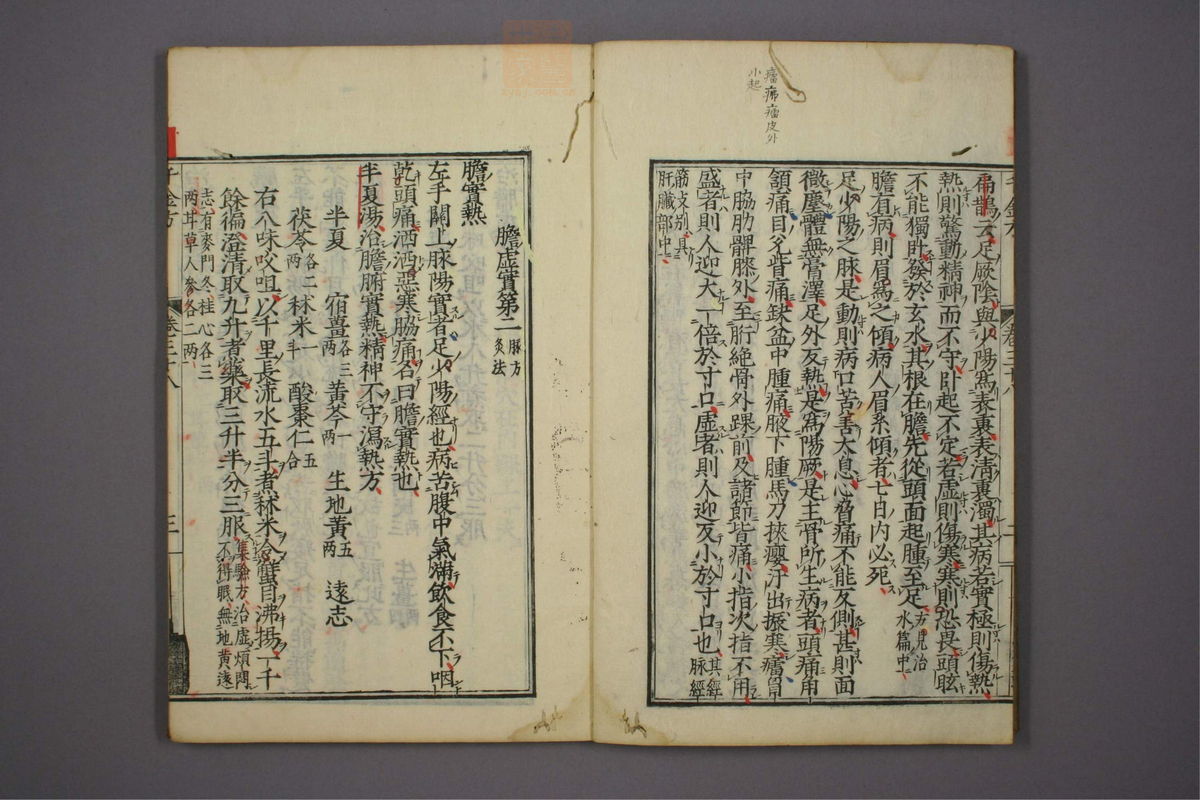 瘤痛瘤皮外
小起
扁鵲云足厥陰與少陽為表裏表清裏濁其病若實極則傷熱
熱則驚動精神而不守臥起不定若虛則傷寒寒則恐畏頭眩
不能獨臥發於玄水其根在膽先從頭面起腫至足方見治水篇中
膽有病則眉為之傾病人眉系傾者七日內必死
足少陽之脉是動則病口苦善太息心脅痛不能反側甚則面
微塵體無膏澤足外反熱是為陽厥是主骨所生病者頭痛角
頷痛目兌眥痛缺盆中腫痛腋下腫馬刀挾癭汗出振寒瘧胷
中脇肋髀膝外至胻絕骨外踝前及諸節皆痛小指次指不用
盛者則人迎大一倍於寸口虛者則人迎反小於寸口也其經脉經
筋支別具
肝臟部中
膽虛實第二脉方灸法
膽實熱
左手關上脉陽實者足少陽經也病苦腹中氣滿飲食不下咽
乾頭痛洒洒惡寒脇痛名曰膽實熱也
半夏湯治膽腑實熱精神不守瀉熱方
半夏 宿薑各三兩 黃芩一兩 生地黃五兩 遠志
茯苓各二兩 秫米一斗 酸棗仁五合
右八味㕮咀以千里長流水五斗煮秫米令蟹目沸揚一千
餘徧澄清取九升煮藥取三升半分三服集驗方治虛煩悶不得眠無地黃遠
志有麥門冬桂心各三
兩甘草人參各二兩
千金方
卷三十八
三